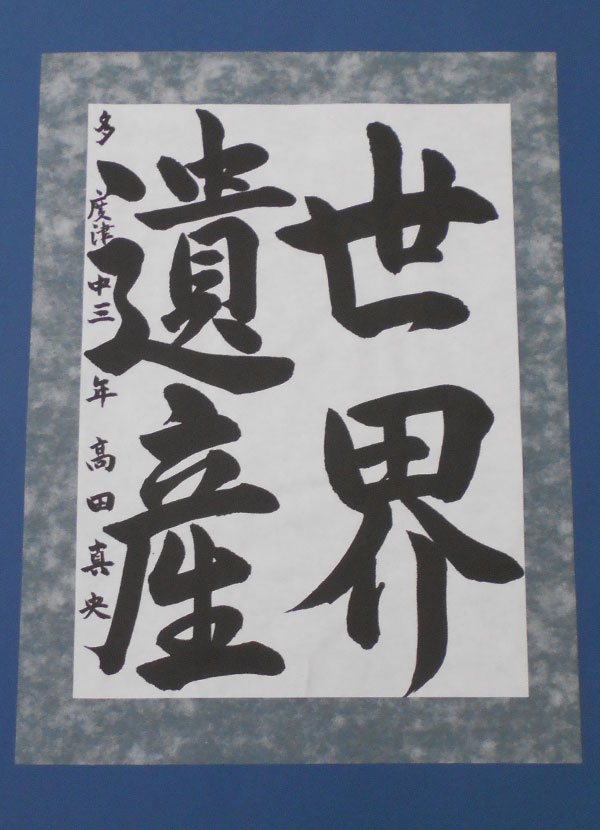 世界
遺産
多度津中三年 高田真央